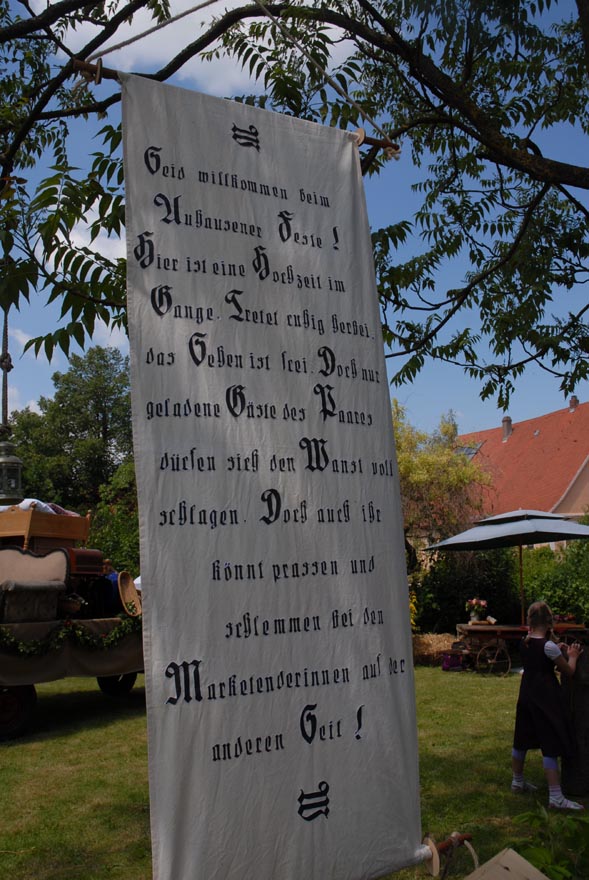 Seid willkommen beim
Auhausener Feste !
Hier ist eine Hochzeit im
Gange. Tretet ruhig herbei,
das Sehen ist frei. Doch nur
geladene Gäste des Paares
dürfen sich den Wanst voll
schlagen. Doch auch ihr
könnt prassen und
schlemmen bei den
Marketenderinnen auf der
anderen Seit !